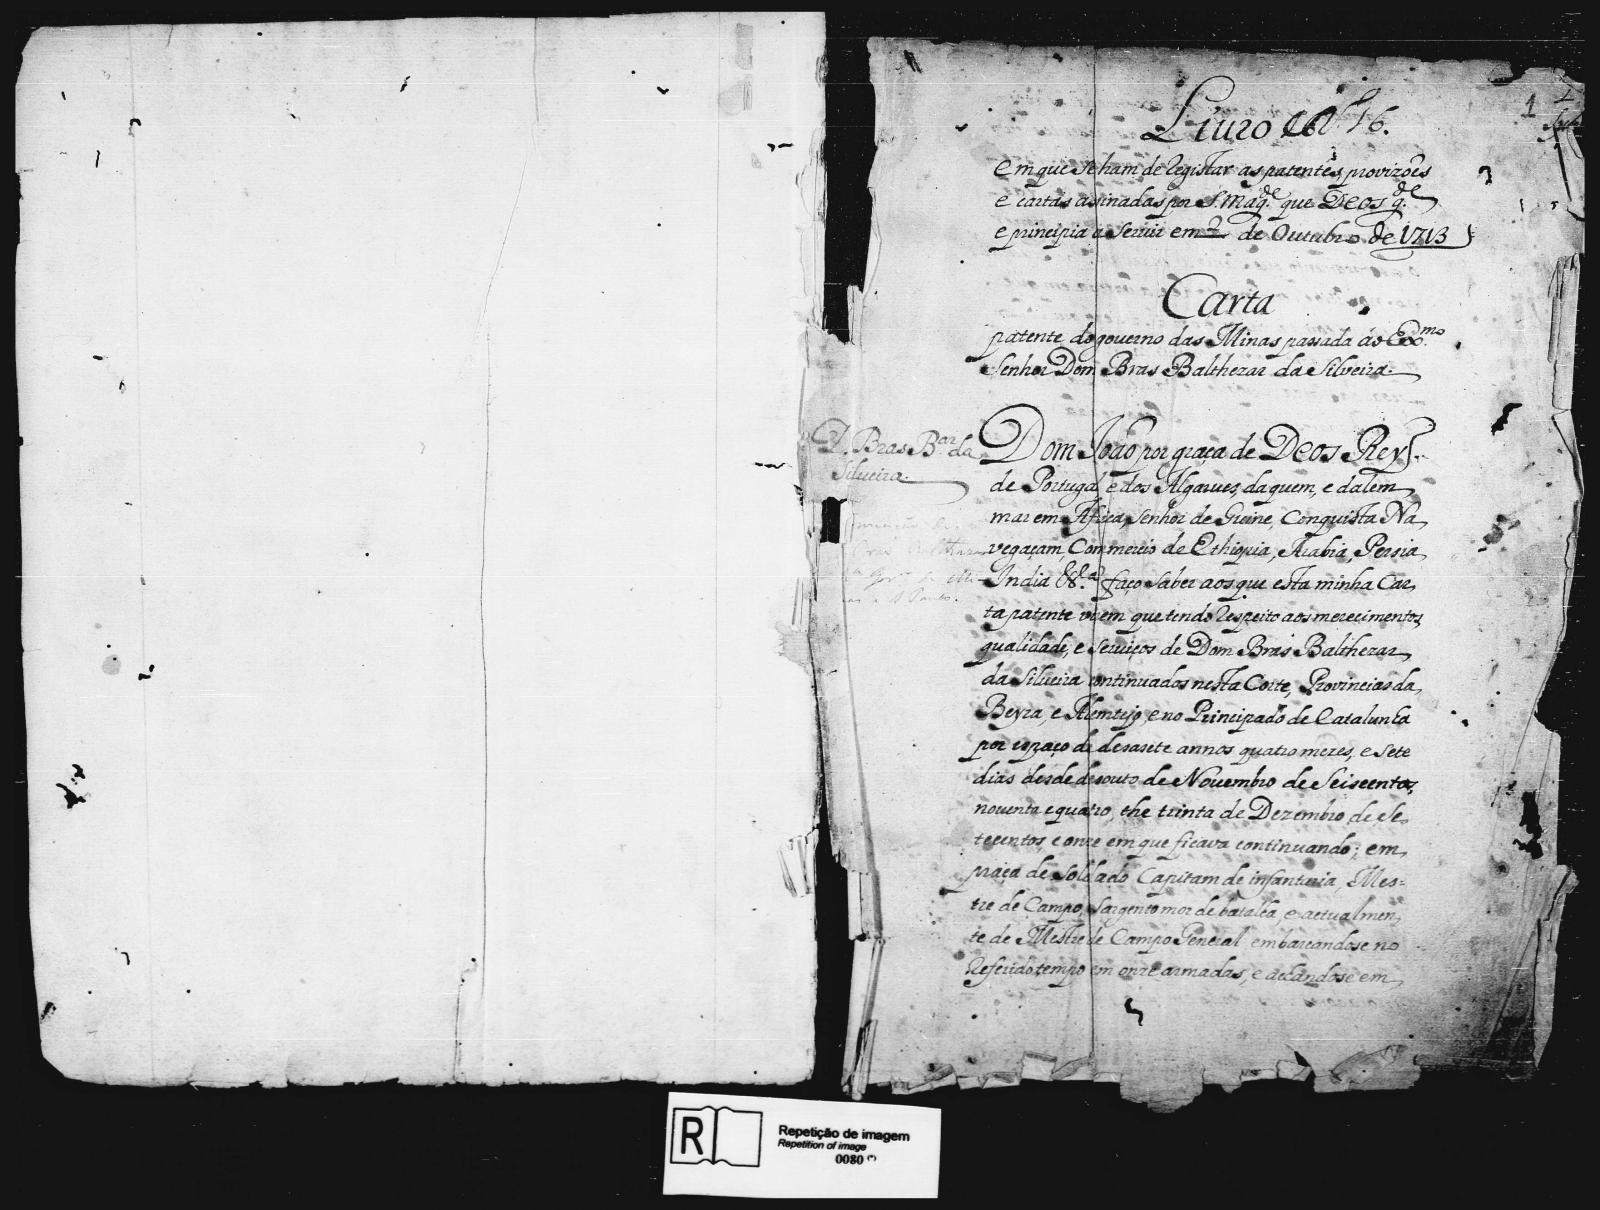 1
Livro Nº 16.
Em que se ham de Registar as patentes, provizões
e cartas asinadas por S. Magde. que Deos gde.
e principia a Servir em 2 de Outubro de 1713
Carta
patente do governo das Minas passada ao Exmo.
Senhor Dom Bras Balthezar da Silveira.
D. Bras Bar. da
Silveira.
Dom João por graça de Deos Rey
de Portugal e dos Algarves, daquem, e dalem
mar em Africa, Senhor de Guine, Conquista Na
vegaçam, Commercio de Ethiopia, Arabia, Persia
India &ª. faço saber aos que esta minha Car
ta patente virem que tendo Respeito aos merecimentos
qualidade, e serviços de Dom Bras Balthezar
da Silveira continuados nesta Corte, Provincias da
Beyra, e Alemtejo, e no Principado de Catalunha
por espaço de desasete annos quatro mezes, e sete
dias desde desouto de Novembro de Seiscentos
noventa e quatro, the trinta de Dezembro de Se
tecentos e onze em que ficava continuando; em
praça de Soldado Capitam de infantaria, Mes=
tre de Campo, Sargento mor de batalha, e actualmen
te de Mestre de Campo General embarcandose no
Referido tempo em onze armadas, e achandose em
R
Repetição de imagem
Repetition of image
0080 (*)